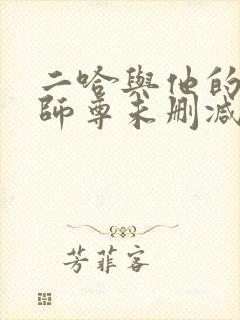 二哈與他的
師尊未刪減
芳菲客